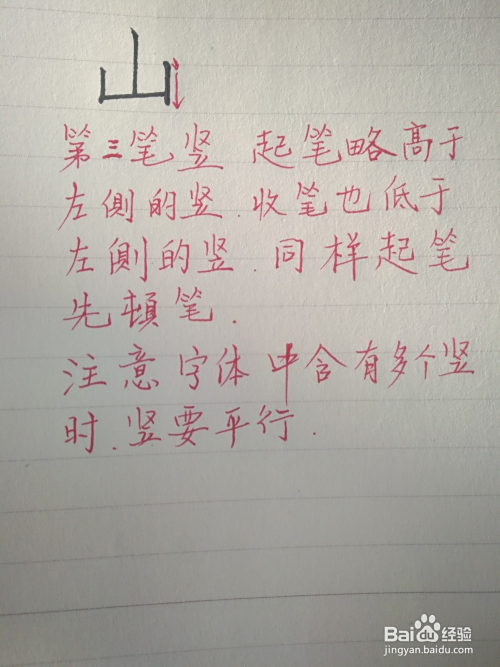 山
第三笔竖 起笔略高于
左侧的竖.收笔也低于
左側的竖.同样起笔
先頓笔.
注意字体中含有多个竖
时.竖要平行.
Baidu经验
jingyan.baidu.com